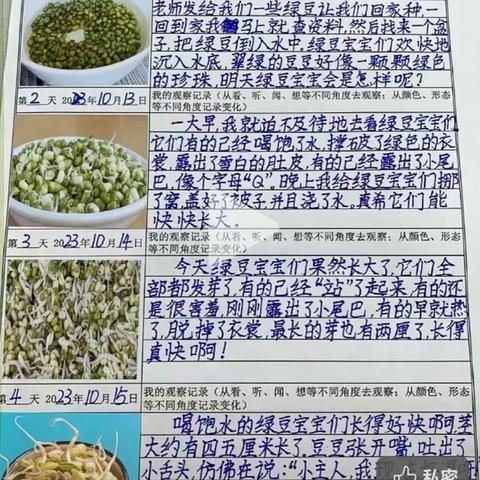 老师发给我们一些绿豆让我们回家种,一
回到家我马上就查资料,然后找来一个盆
子,把绿豆倒入水中,绿豆宝宝们欢快地
沉入水底,翠绿的豆豆好像一颗颗绿色
的珍珠,明天绿豆宝宝会是怎样呢?
第2天 2023年10月13日
我的观察记录(从看、听、闻、想等不同角度去观察;从颜色、形态
等不同角度记录变化)
一大早,我就迫不及待地去看绿豆宝宝们,
它们有的已经喝饱了水,撑破了绿色的衣
裳,露出了雪白的肚皮,有的已经露出了小尾
巴,像个字母“Q”。晚上我给绿豆宝宝们挪
了窝,盖好了被子并且浇了水,真希它们能
快快长大。
第3天 2023年10月14日
我的观察记录(从看、听、闻、想等不同角度去观察;从颜色、形态
等不同角度记录变化)
今天绿豆宝宝们果然长大了,它们全
部都发芽了,有的已经“站”了起来,有的还
是很害羞,刚刚露出了小尾巴,有的早就热
了,脱掉了衣裳,最长的芽也有两厘了,长得
真快啊!
第4天 2023年10月15日
我的观察记录(从看、听、闻、想等不同角度去观察;从颜色、形态
等不同角度记录变化)
喝饱水的绿豆宝宝们长得好快啊,芽
大约有四五厘米长了,豆豆张开嘴,吐出了
小舌头,仿佛在说:“小主人,我
私密